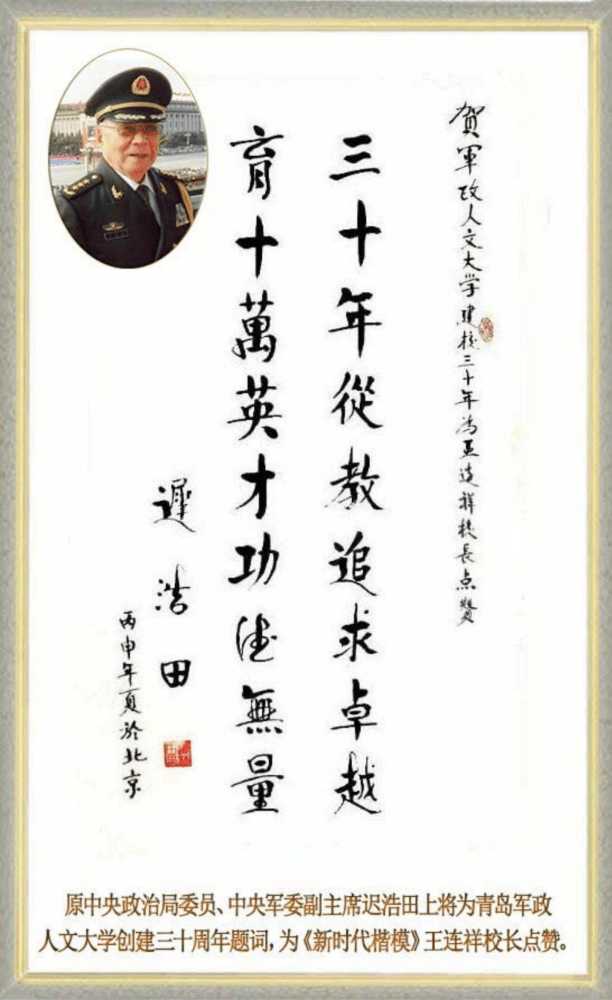 賀軍政人文大学建校三十年为王连祥校長点赞
三十年從教追求卓越
育十萬英才功德無量
遲浩田
丙申年夏於北京
原中央政治局委员、中央军委副主席迟浩田上将为青岛军政
人文大学创建三十周年题词,为《新时代楷模》王连祥校长点赞。